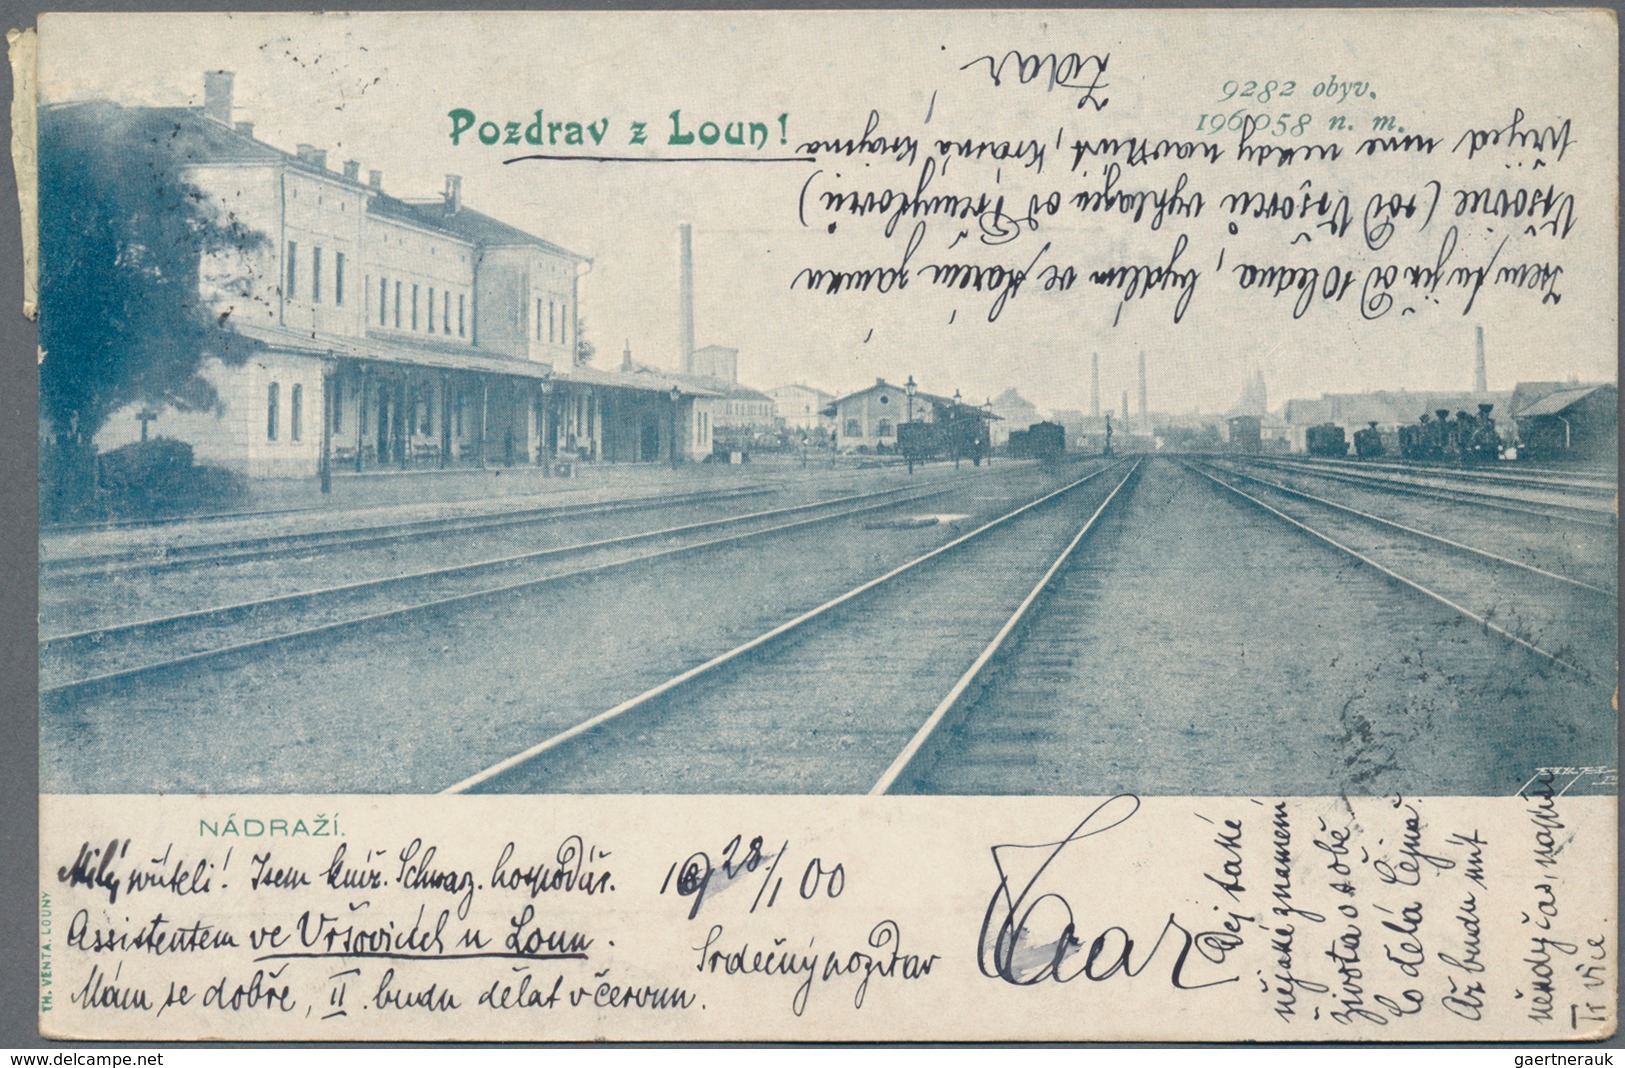 Pozdrav z Loun!
9282 obyv.
196·058 n. m.
Jsem tu již od 10 ledna, bydlím ve starém zámku
Vršovic (rod Vršovců vyhlazen od Přemyslovců)
Přijeď mne někdy navštívit, krásná krajina
Zdar!
NÁDRAŽÍ.
TH. VENTA. LOUNY
Milý příteli! Jsem kníž. Schwarz. hospodář.
Assistentem ve Vršovicích u Loun.
Mám se dobře, II. budu dělat v červnu.
28/1 00
Srdečný pozdrav
Dej také
nějaké znamení
života o sobě
Co dělá
Až budu mít
někdy čas, napíšu
Ti více.
delcampe.net
gaertnerauk